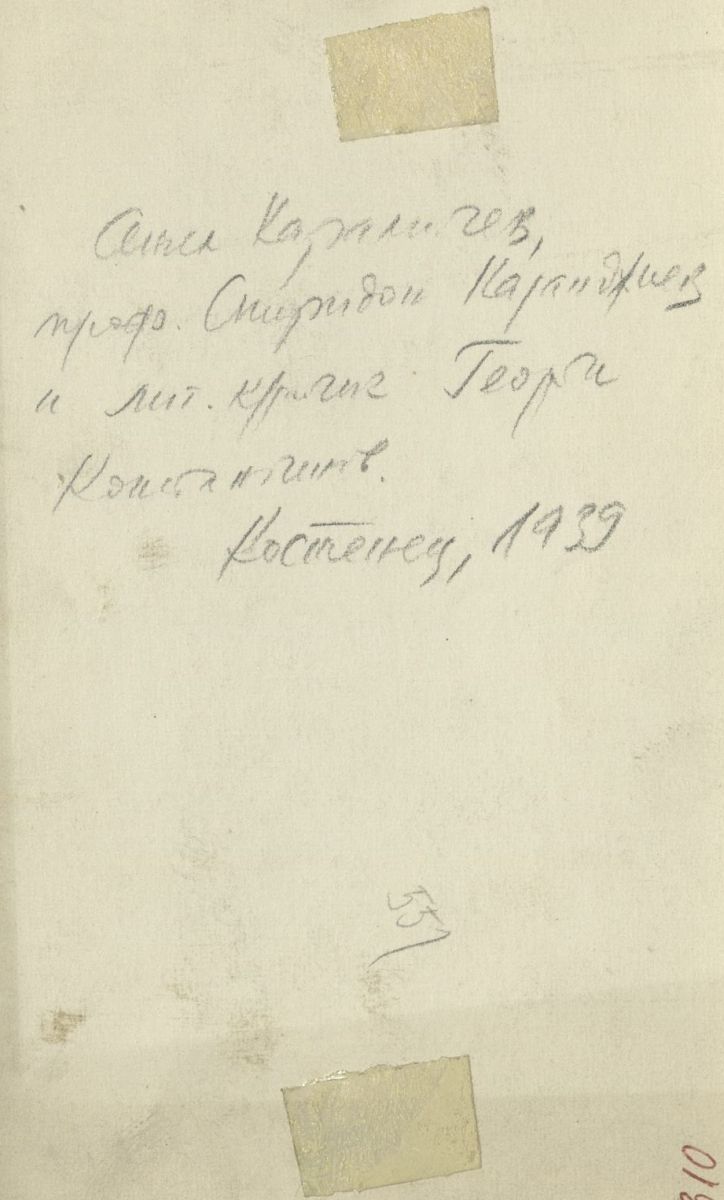 Ангел Каралийчев,
проф. Спиридон Казанджиев
и лит. критик Георги
Константинов.
Костенец, 1939
55
310